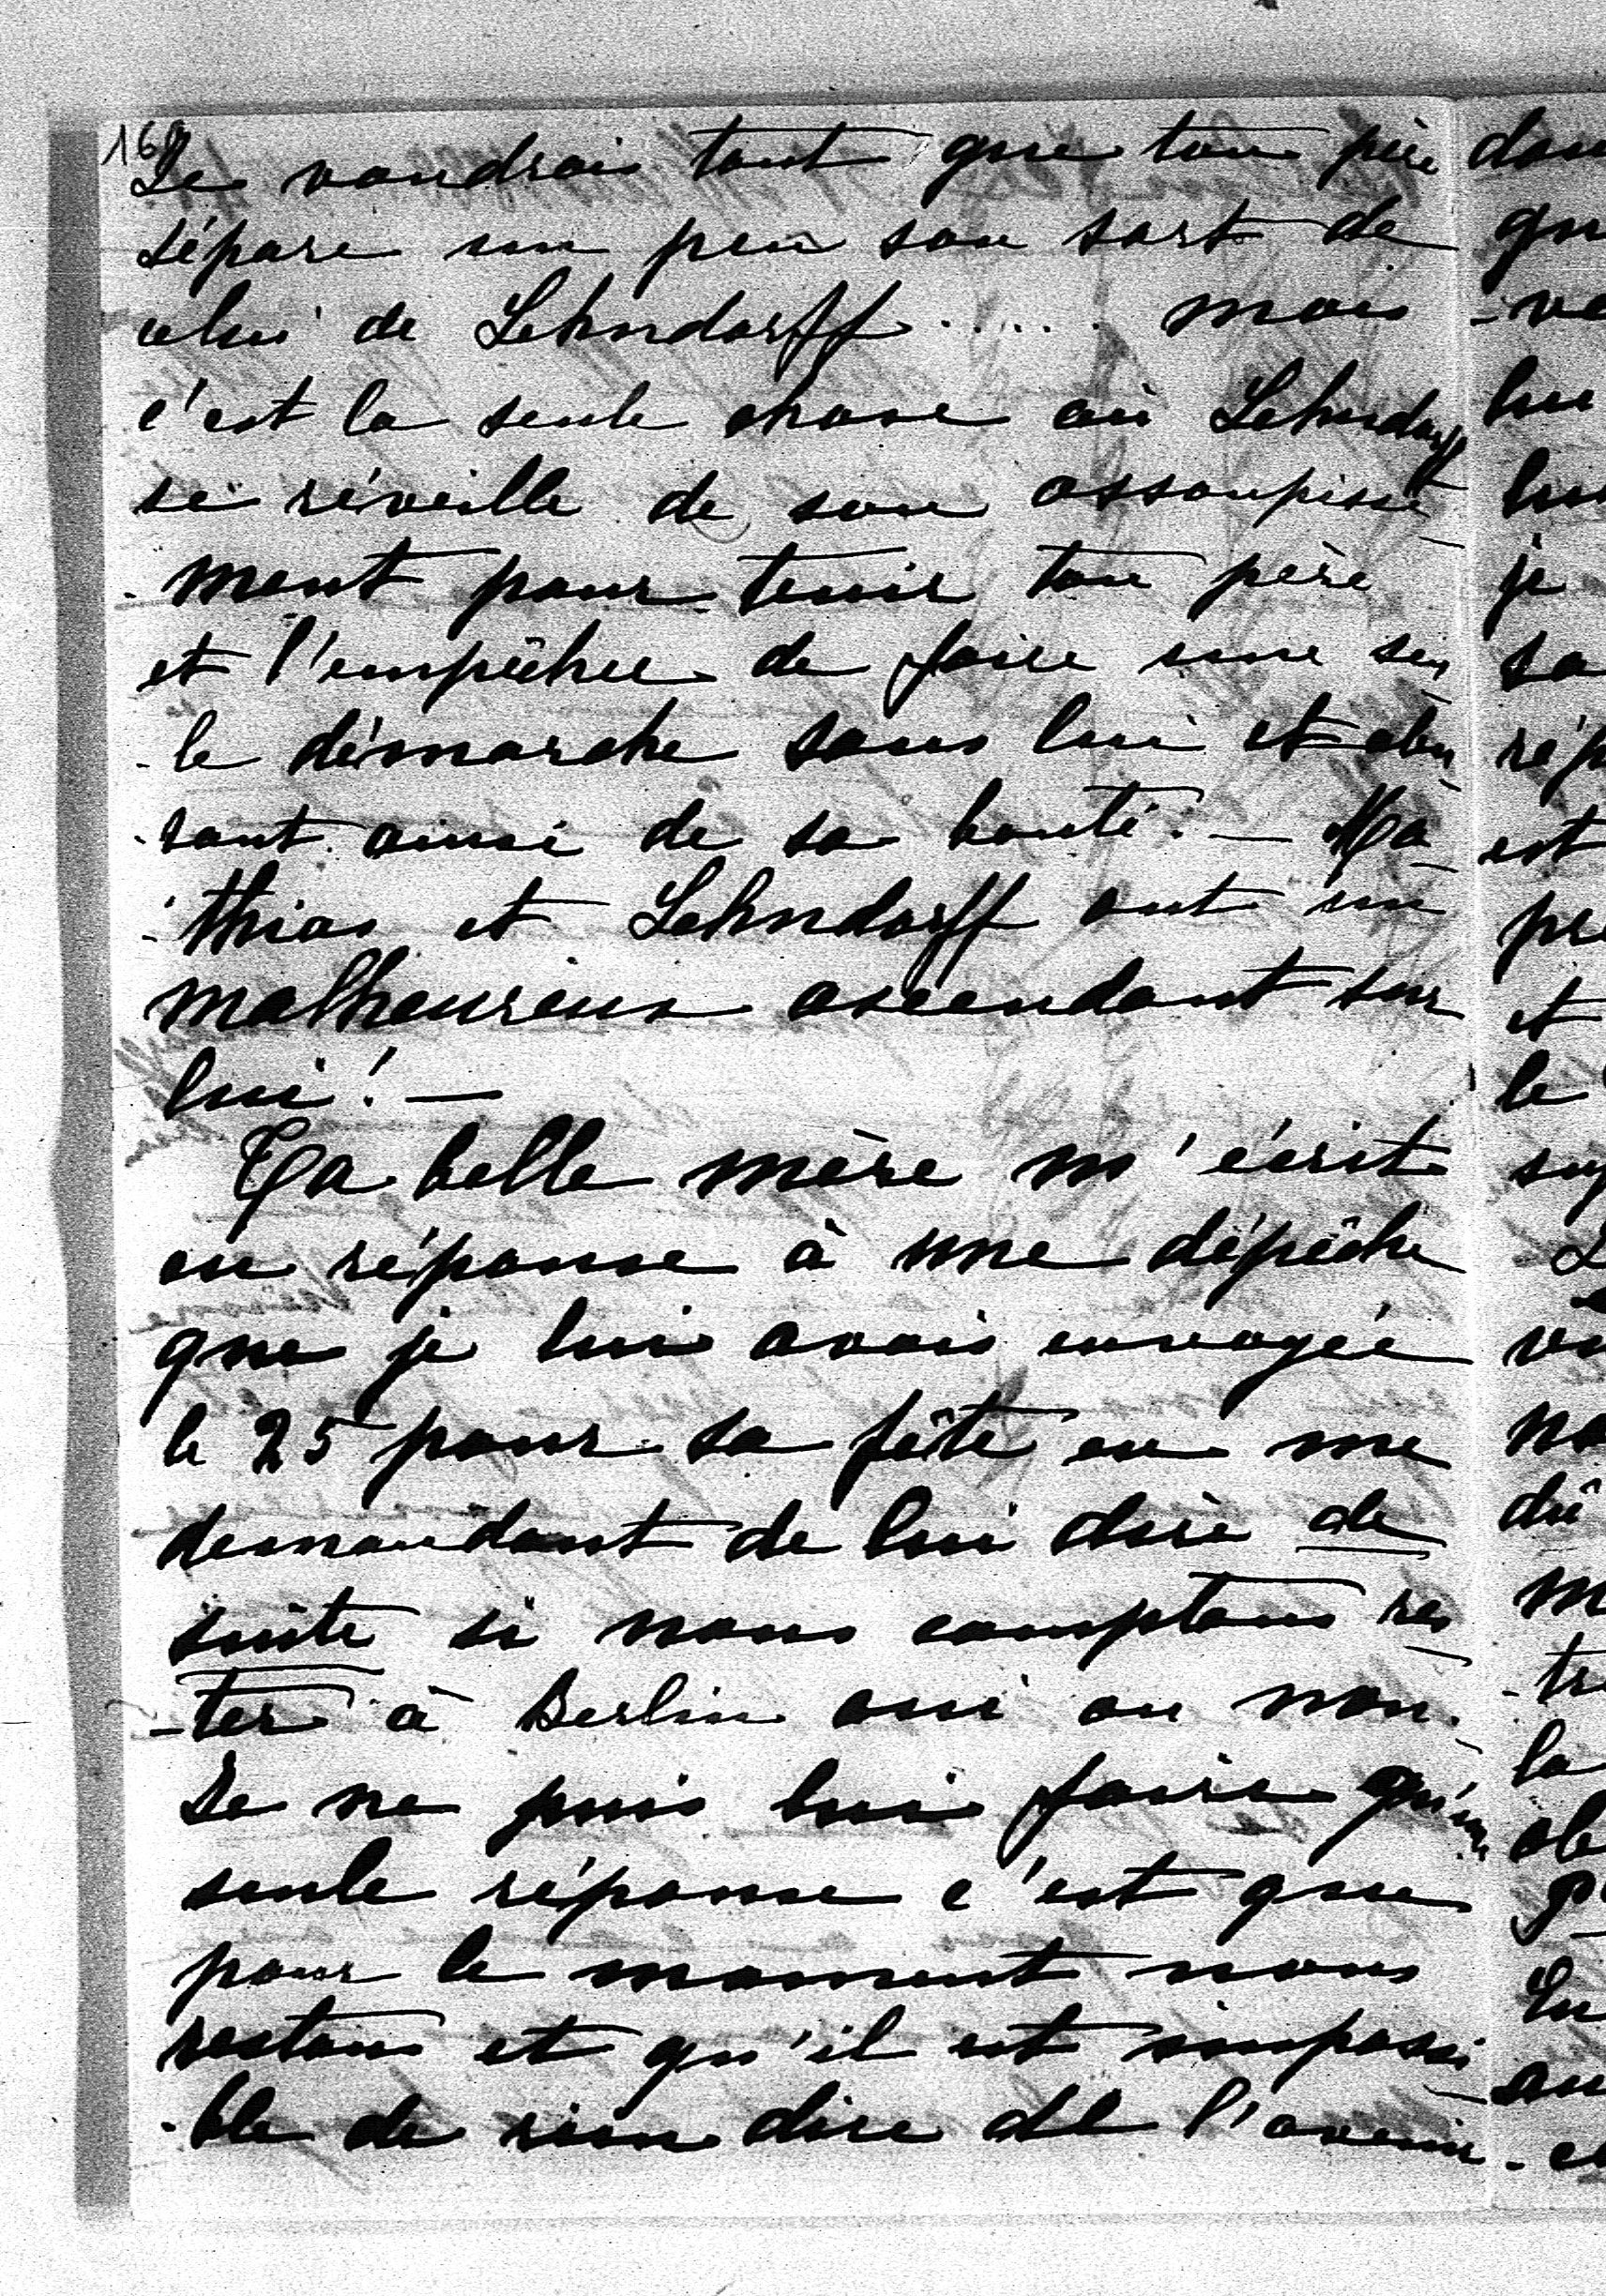 169
Je voudrais tant que ton père
sépare un peu son sort de
celui de Lehndorff...... mais
c'est la seule chose où Lehndorff
se réveille de son assoupisse-
-ment pour tenir ton père
et l'empêcher de faire une seu-
-le démarche sans lui et abu-
-sant ainsi de sa bonté. — Ma-
-thias et Lehndorff ont un
malheureux ascendant sur
lui! —
Ta belle mère m'écrit
en réponse à une dépêche
que je lui avais envoyée
le 25 pour sa fête en me
demandant de lui dire de
suite si nous comptons res-
-ter à Berlin oui ou non.
Je ne puis lui faire qu'une
seule réponse c'est que
pour le moment nous
restons et qu'il est impossi-
-ble de rien dire de l'avenir.